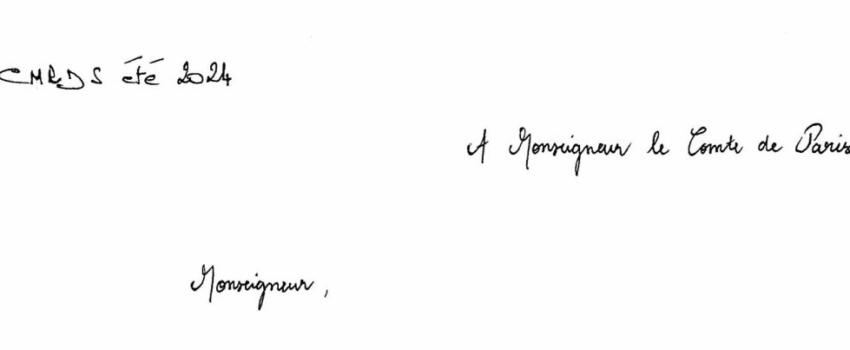 CMRDS été 2024
A Monseigneur le Comte de Paris
Monseigneur,